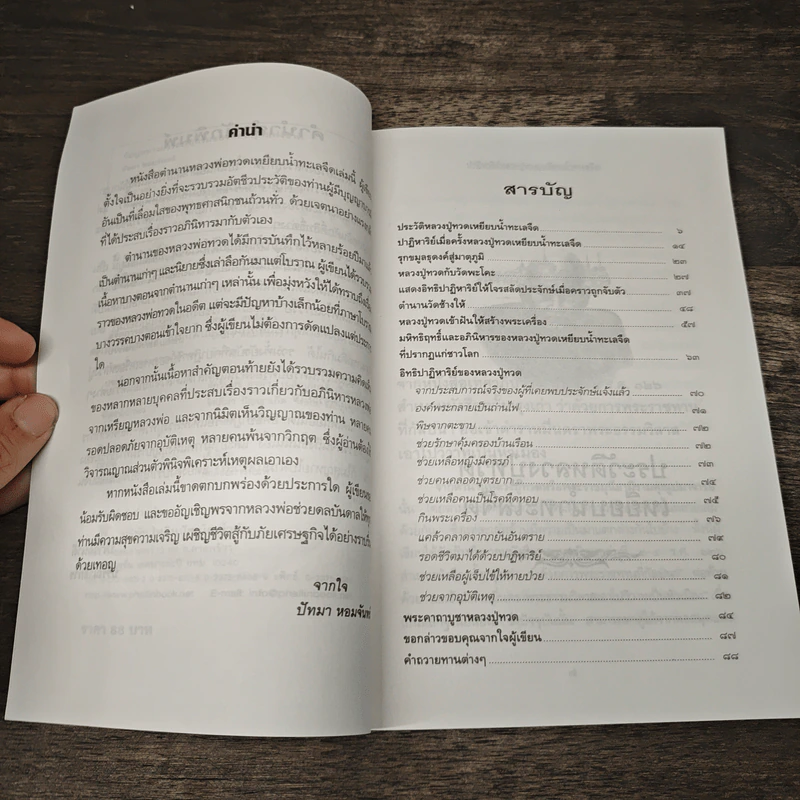 คำนำ
หนังสือตำนานหลวงพ่อทวดเหยียบน้ำทะเลจืดเล่มนี้
ตั้งใจเป็นอย่างยิ่งที่จะรวบรวมอัตชีวประวัติของท่านผู้มีบุญญา
อันเป็นที่เลื่อมใสของพุทธศาสนิกชนถ้วนทั่ว ด้วยเจตนาอย่าง
ที่ได้ประสบเรื่องราวอภินิหารมากับตัวเอง
ตำนานของหลวงพ่อทวดได้มีการบันทึกไว้หลายร้อยปี
เป็นตำนานเก่าๆ และนิยายซึ่งเล่าลือกันมาแต่โบราณ ผู้เขียนได้
เนื้อหาบางตอนจากตำนานเก่าๆ เหล่านั้น เพื่อมุ่งหวังให้ได้ทราบถึง
ราวของหลวงพ่อทวดในอดีต แต่จะมีปัญหาบ้างเล็กน้อยที่ภาษา
บางวรรคบางตอนเข้าใจยาก ซึ่งผู้เขียนไม่ต้องการดัดแปลงแต่
ใด
นอกจากนั้นเนื้อหาสำคัญตอนท้ายยังได้รวบรวมความคิด
ของหลากหลายบุคคลที่ประสบเรื่องราวเกี่ยวกับอภินิหารหลวง
จากเหรียญหลวงพ่อ และจากนิมิตเห็นวิญญาณของท่าน หลาย
รอดปลอดภัยจากอุบัติเหตุ หลายคนพ้นจากวิกฤต ซึ่งผู้อ่านต้อง
วิจารณญาณส่วนตัวพินิจพิเคราะห์เหตุผลเอาเอง
หากหนังสือเล่มนี้ขาดตกบกพร่องด้วยประการใด ผู้เขียน
น้อมรับผิดชอบ และขออัญเชิญพรจากหลวงพ่อช่วยดลบันดาลให้
ท่านมีความสุขความเจริญ เผชิญชีวิตสู้กับภัยเศรษฐกิจได้อย่าง
ด้วยเทอญ
จากใจ
ปัทมา หอมจันทร์
สารบัญ
ประวัติหลวงปู่ทวดเหยียบน้ำทะเลจืด ๖
ปาฏิหาริย์เมื่อครั้งหลวงปู่ทวดเหยียบน้ำทะเลจืด ๑๔
รุกขมูลธุดงค์สู่มาตุภูมิ ๒๓
หลวงปู่ทวดกับวัดพะโคะ ๒๗
แสดงอิทธิปาฏิหาริย์ให้โจรสลัดประจักษ์เมื่อคราวถูกจับตัว ๓๗
ตำนานวัดช้างให้ ๔๘
หลวงปู่ทวดเข้าฝันให้สร้างพระเครื่อง ๕๗
มหิทธิฤทธิ์และอภินิหารของหลวงปู่ทวดเหยียบน้ำทะเลจืด
ที่ปรากฏแก่ชาวโลก ๖๓
อิทธิปาฏิหาริย์ของหลวงปู่ทวด
จากประสบการณ์จริงของผู้ที่เคยพบประจักษ์แจ้งแล้ว ๗๐
องค์พระกลายเป็นถ่านไฟ ๗๑
พิษจากตะขาบ ๗๒
ช่วยรักษาคุ้มครองบ้านเรือน ๗๒
ช่วยเหลือหญิงมีครรภ์ ๗๓
ช่วยคนคลอดบุตรยาก ๗๔
ช่วยเหลือคนเป็นโรคหืดหอบ ๗๕
กินพระเครื่อง ๗๖
แคล้วคลาดจากภยันอันตราย ๗๙
รอดชีวิตมาได้ด้วยปาฏิหาริย์ ๘๐
ช่วยเหลือผู้เจ็บไข้ให้หายป่วย ๘๑
ช่วยจากอุบัติเหตุ ๘๒
พระคาถาบูชาหลวงปู่ทวด ๘๔
ขอกล่าวขอบคุณจากใจผู้เขียน ๘๗
คำถวายทานต่างๆ ๘๘